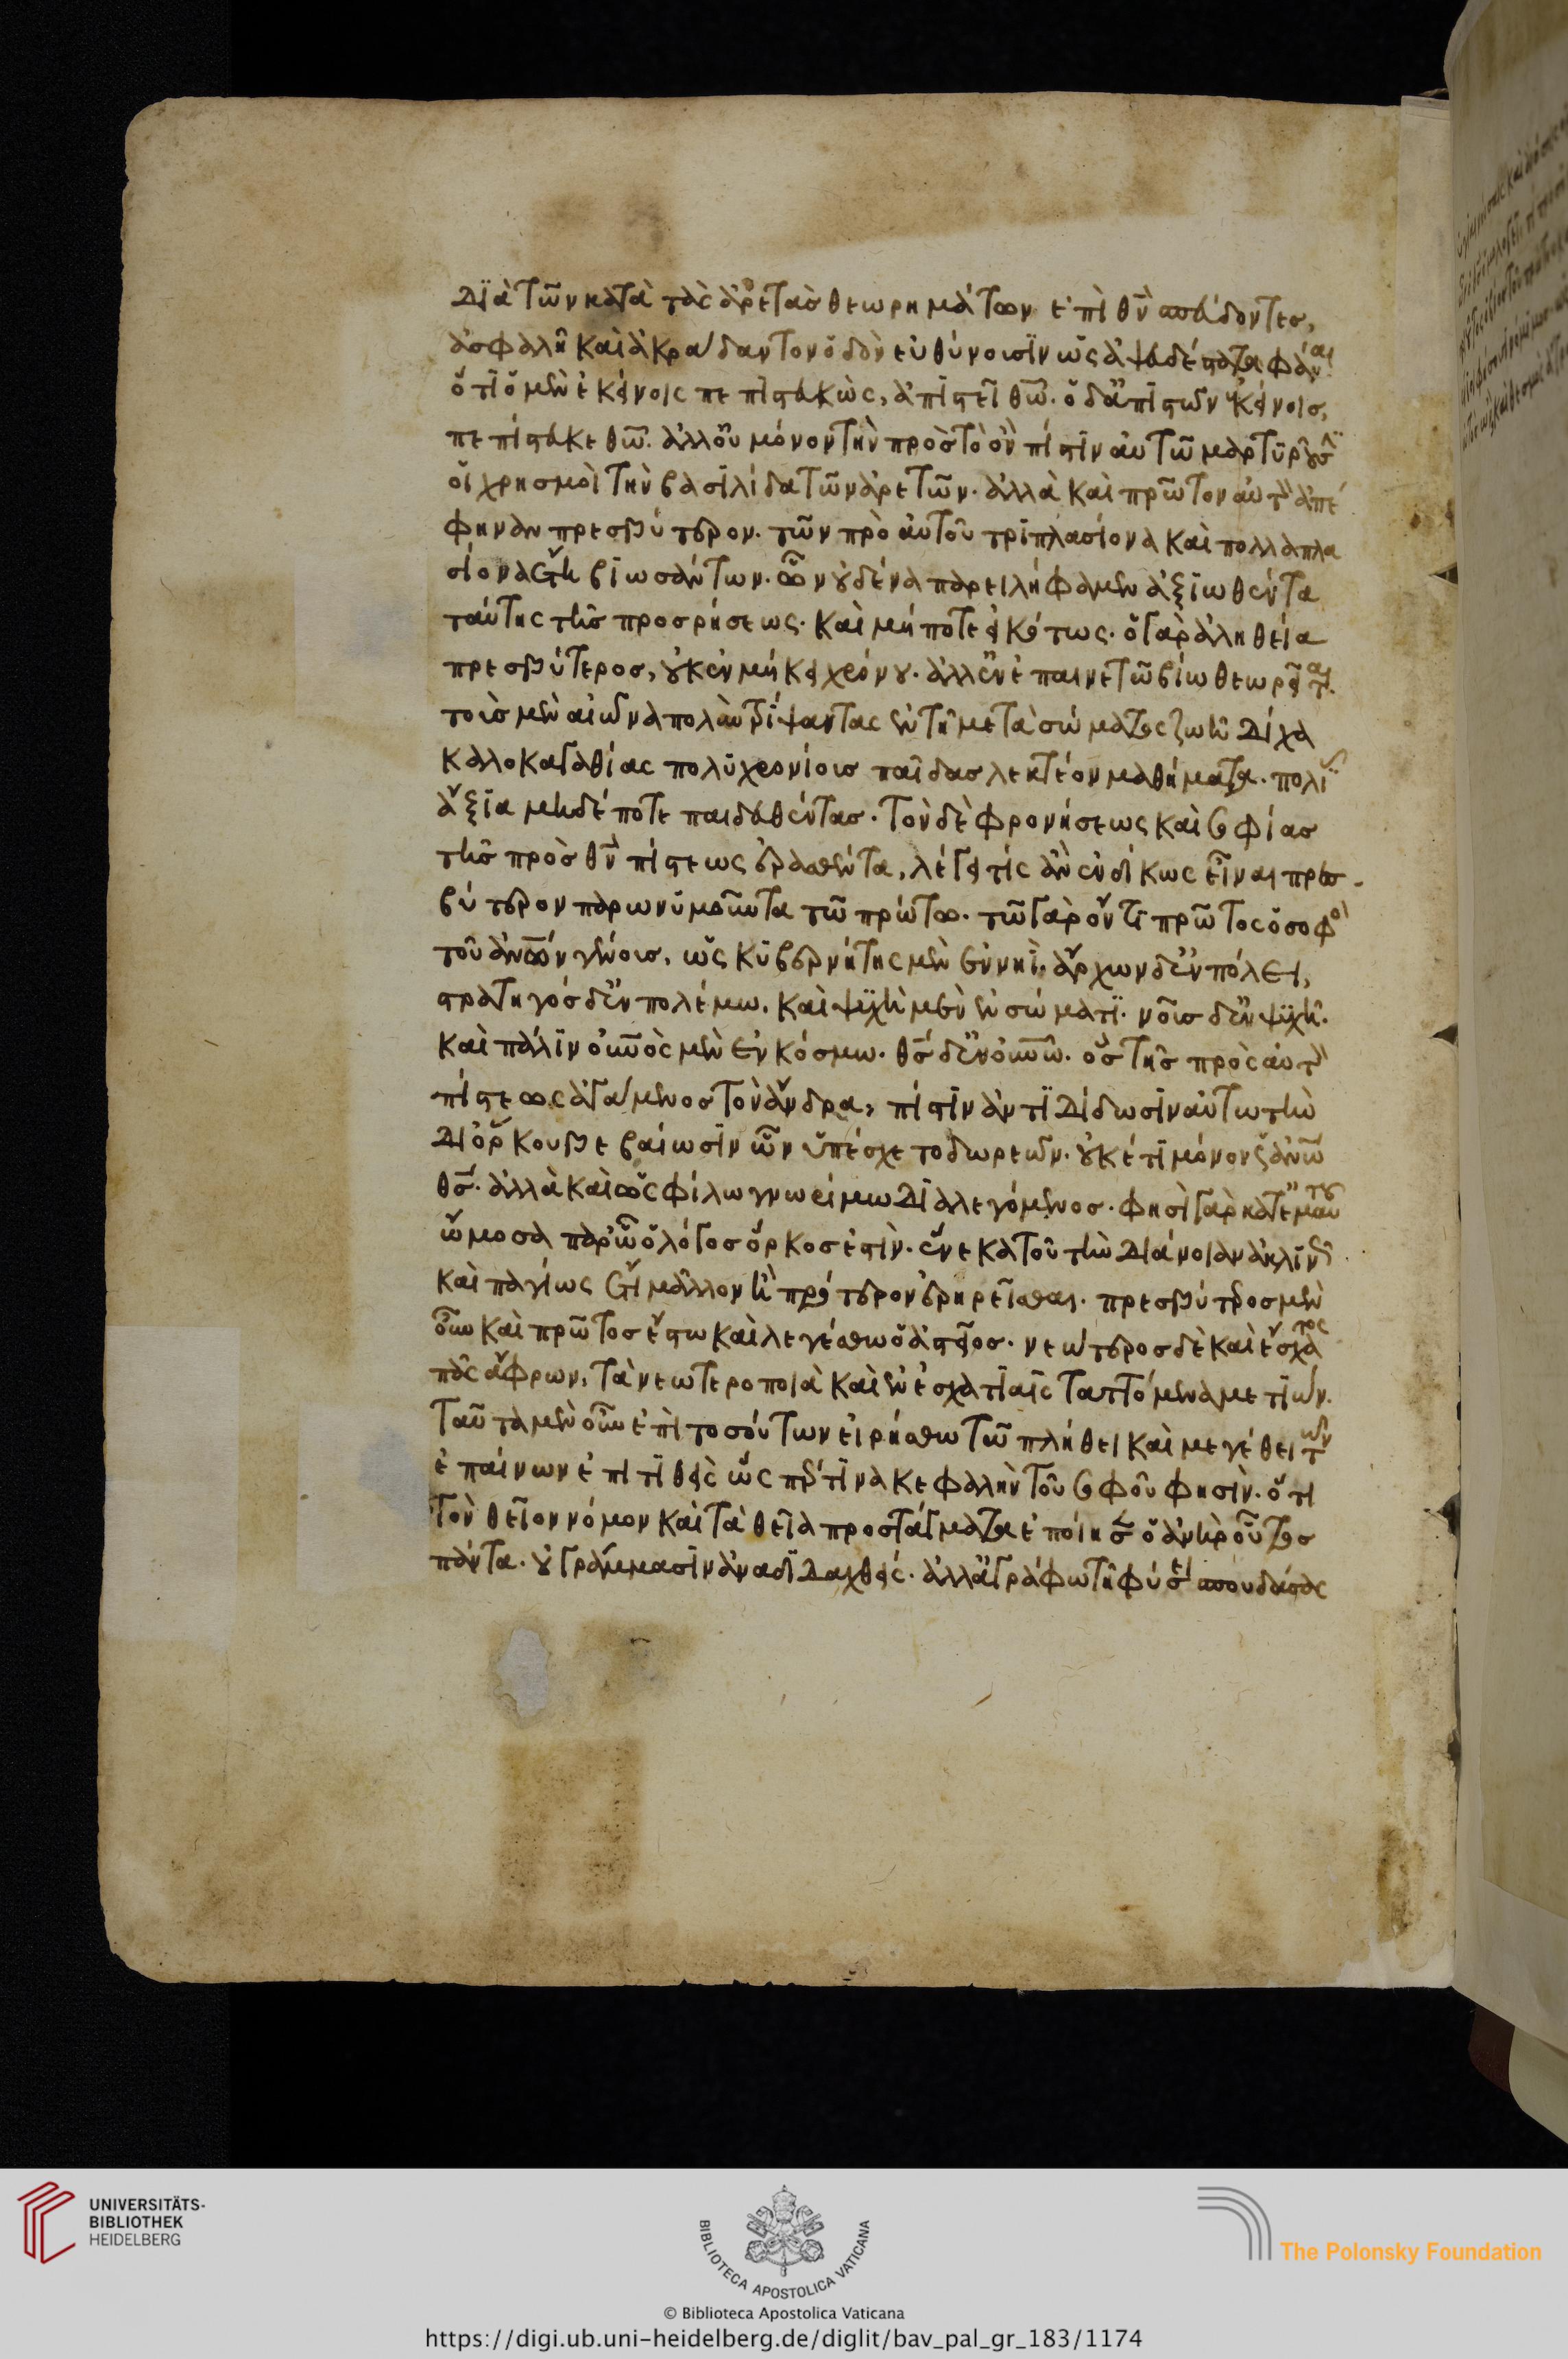 Διὰ τῶν κατὰ τὰς ἀρετὰς θεωρημάτων ἐπὶ θν̄ σπεύδοντες,
ἀσφαλῆ καὶ ἀκράδαντον ὁδὸν εὐθύνουσιν ὡς ἀψευδέστατα φάναι
ὅτι ὁ μὲν ἐκείνοις πεπιστευκὼς, ἀπιστεῖ θω̄. ὁ δ' ἀπιστῶν ἐκείνοις,
πεπίστευκε θω̄. ἀλλ' οὐ μόνον τὴν πρὸς τὸ ὂν πίστιν αὐτῶ μαρτυροῦσι
οἱ χρησμοὶ τὴν βασιλίδα τῶν ἀρετῶν. ἀλλὰ καὶ πρῶτον αὐτὸν ἀπέ
φηναν πρεσβύτερον. τῶν πρὸ αὐτοῦ τριπλασίονα καὶ πολλαπλα
σίονα ἔτη βιωσάντων. ὧν οὐδένα παρειλήφαμεν ἀξιωθέντα
ταύτης τῆς προσρήσεως. καὶ μήποτε εἰκότως. ὁ γὰρ ἀληθεία
πρεσβύτερος, οὐκ ἐν μήκει χρόνου. ἀλλ' ἐν ἐπαινετῶ βίω θεωρεῖται.
τοὺς μὲν αἰῶνα πολὺν τρίψαντας ἐν τῆ μετὰ σώματος ζωῆ Δίχα
καλοκαγαθίας πολυχρονίους παῖδας λεκτέον μαθήματα. πολιᾶς
ἄξια μηδέποτε παιδευθέντας. τὸν δὲ φρονήσεως καὶ σοφίας
τῆς πρὸς θν̄ πίστεως ἐρασθέντα, λέγει τίς ἂν ἐνδίκως εἶναι πρεσ-
βύτερον παρωνυμοῦντα τῶ πρώτω. τῶ γὰρ ὄντι πρῶτος ὁ σοφὸς
τοῦ ἀνω̄ν γένους, ὡς κυβερνήτης μὲν ἐν νηῒ. ἄρχων δ' ἐν πόλει,
στρατηγός δ' ἐν πολέμω. καὶ ψυχὴ μὲν ἐν σώματι. νοῦς δ' ἐν ψυχῆ.
καὶ πάλιν οὐνὸς μὲν ἐν κόσμω. θς̄ δ' ἐν οὐνῶ. ὃς τῆς πρὸς αὐτὸν
πίστεως ἀγάμενος τὸν ἄνδρα, πίστιν ἀντιδίδωσιν αὐτῶ τὴν
Δι' ὅρκου βεβαίωσιν ὧν ὑπέσχετο δωρεῶν. οὐκέτι μόνον ὡς ἀνω̄
θς̄. ἀλλὰ καὶ ὡς φίλω γνωρίμω Διαλεγόμενος. φησὶ γὰρ κατ' ἐμαυτοῦ
ὤμοσα παρ' ὧ ὁ λόγος ὅρκος ἐστὶν. ἕνεκα τοῦ τὴν Διάνοιαν ἀκλινῶς
καὶ παγίως ἔτι μᾶλλον ἢ πρότερον ἐρηρεῖσθαι. πρεσβύτερος μὲν
οὖν καὶ πρῶτος ἔστω καὶ λεγέσθω ὁ ἀστεῖος. νεώτερος δὲ καὶ ἔσχατος
πᾶς ἄφρων, τὰ νεωτεροποιὰ καὶ ἐν ἐσχατιαῖς ταττόμενα μετιών.
Ταῦτα μὲν οὖν ἐπὶ τοσούτων εἰρήσθω τῶ πλήθει καὶ μεγέθει τῶν
ἐπαίνων ἐπιτιθεὶς ὥσπερ τινὰ κεφαλὴν τοῦ σοφοῦ φησὶν. ὅτι
τὸν θεῖον νόμον καὶ τὰ θεῖα προστάγματα ἐποίησεν ὁ ἀνὴρ οὗτος
πάντα. οὐ γράμμασιν ἀναδιδαχθείς. ἀλλ' ἀγράφω τῆ φύσει σπουδάσας
UNIVERSITÄTS-
BIBLIOTHEK
HEIDELBERG
BIBLIOTECA APOSTOLICA VATICANA
The Polonsky Foundation
© Biblioteca Apostolica Vaticana
https://digi.ub.uni-heidelberg.de/diglit/bav_pal_gr_183/1174